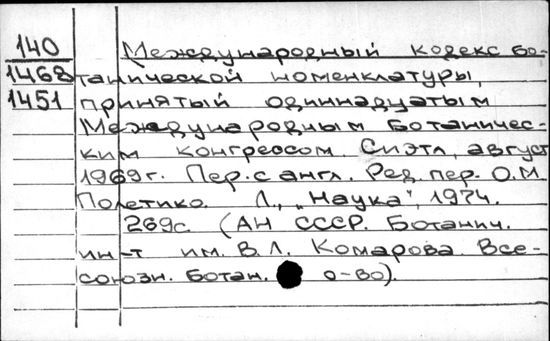 140
1468
1451
Международный кодекс бо-
танической номенклатуры,
принятый одиннадцатым
Международным Ботаничес-
ким конгрессом. Сиэтл, август
1969г. Пер. с англ. Ред. пер. О.М.
Полетико. Л., "Наука", 1974.
269с. (АН СССР. Ботанич.
ин-т им. В.Л. Комарова. Все-
союзн. ботан. о-во).